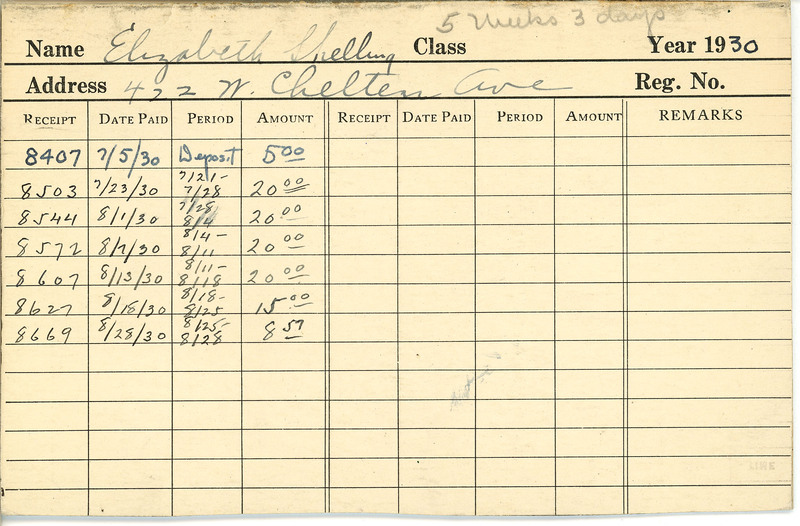 5 Weeks 3 days
Name Elizabeth Shelling Class Year 1930
Address 422 W. Chelten Ave Reg. No.
RECEIPT DATE PAID PERIOD AMOUNT RECEIPT DATE PAID PERIOD AMOUNT REMARKS
8407 7/5/30 Deposit 5.00
8503 7/23/30 7/21- 7/28 20.00
8544 8/1/30 7/28 8/4 20.00
8572 8/7/30 8/4- 8/11 20.00
8607 8/13/30 8/11- 8/18 20.00
8627 8/18/30 8/18- 8/25 15.00
8669 8/28/30 8/25- 8/28 8.57
LINE